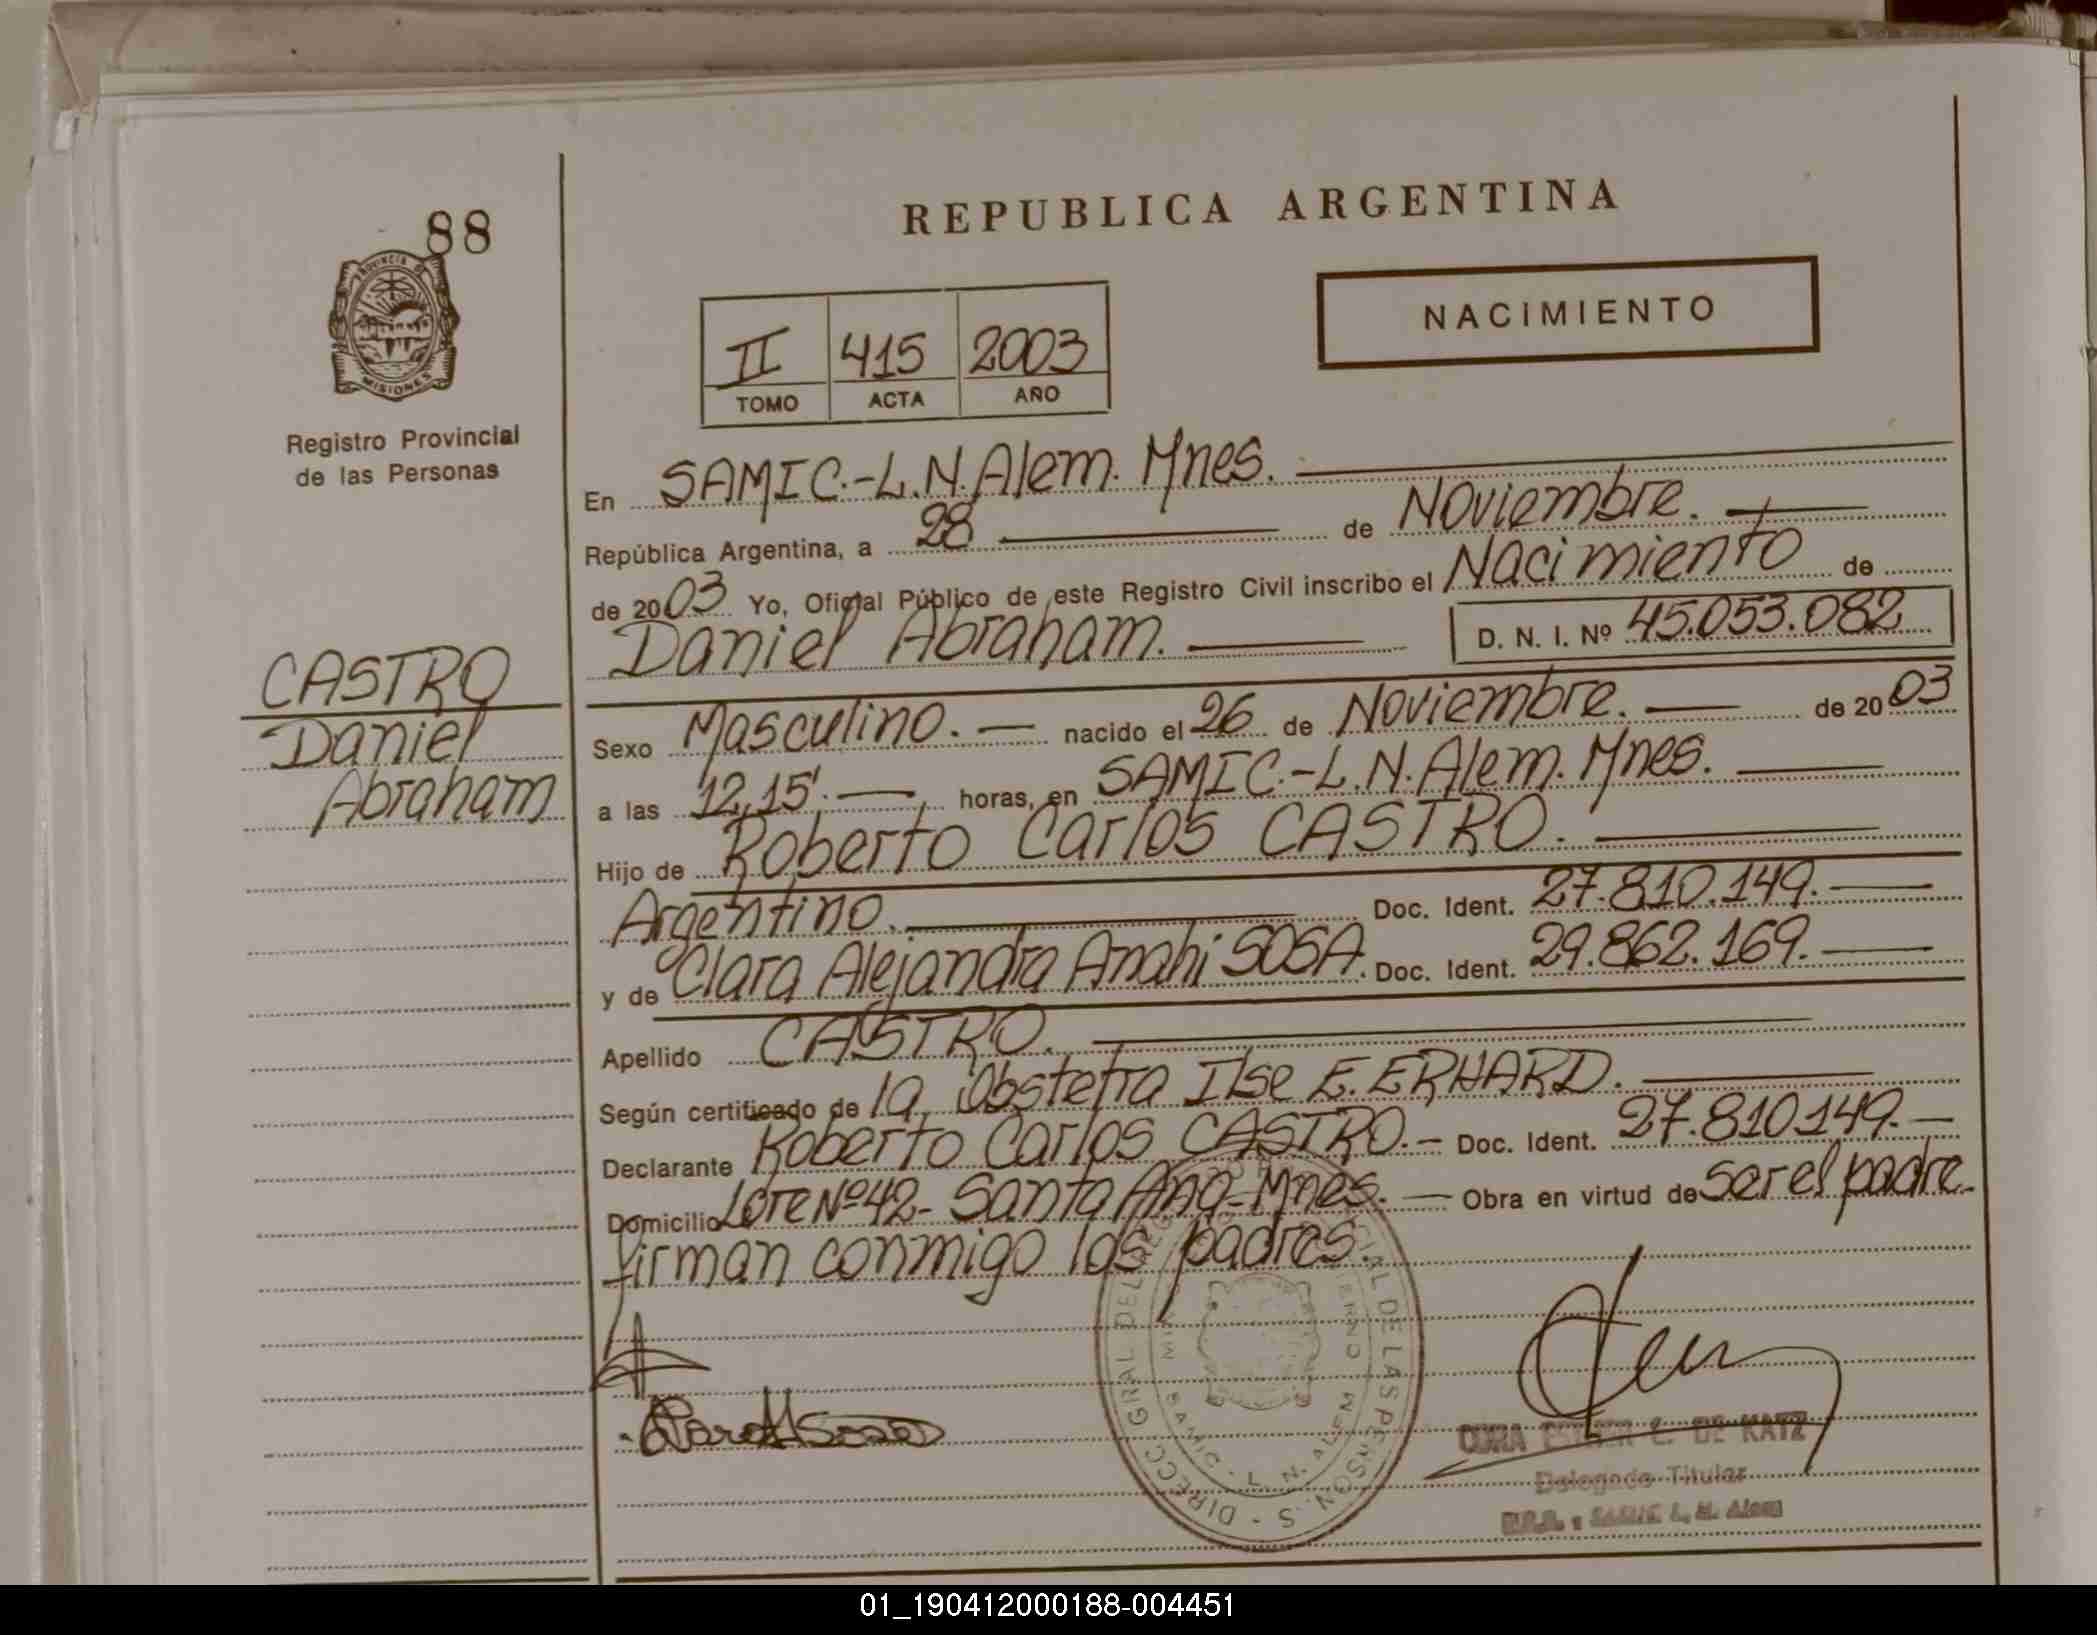 REPUBLICA ARGENTINA
88
PROVINCIA DE
MISIONES
Registro Provincial
de las Personas
NACIMIENTO
II 415 2003
TOMO ACTA AÑO
En SAMIC.-L.N.Alem. Mnes.
República Argentina, a 28 de Noviembre.
de 2003 Yo, Oficial Público de este Registro Civil inscribo el Nacimiento de
Daniel Abraham. D. N. I. Nº 45.053.082
CASTRO
Daniel
Abraham
Sexo Masculino. nacido el 26 de Noviembre. de 2003
a las 12,15'. horas, en SAMIC.-L.N.Alem. Mnes.
Hijo de Roberto Carlos CASTRO.
Argentino. Doc. Ident. 27.810.149.
y de Clara Alejandra Anahi SOSA. Doc. Ident. 29.862.169.
Apellido CASTRO.
Según certificado de la Obstetra Ilse E. ERHARD.
Declarante Roberto Carlos CASTRO.- Doc. Ident. 27.810.149.-
Domicilio Lote Nº42- Santa Ana-Mnes. Obra en virtud de ser el padre.
firman conmigo los padres.
DE LAS PERSONAS
SAMIC - L. N. ALEM
ESTHER C. DE KATZ
Delegado Titular
L. N. Alem
01_190412000188-004451